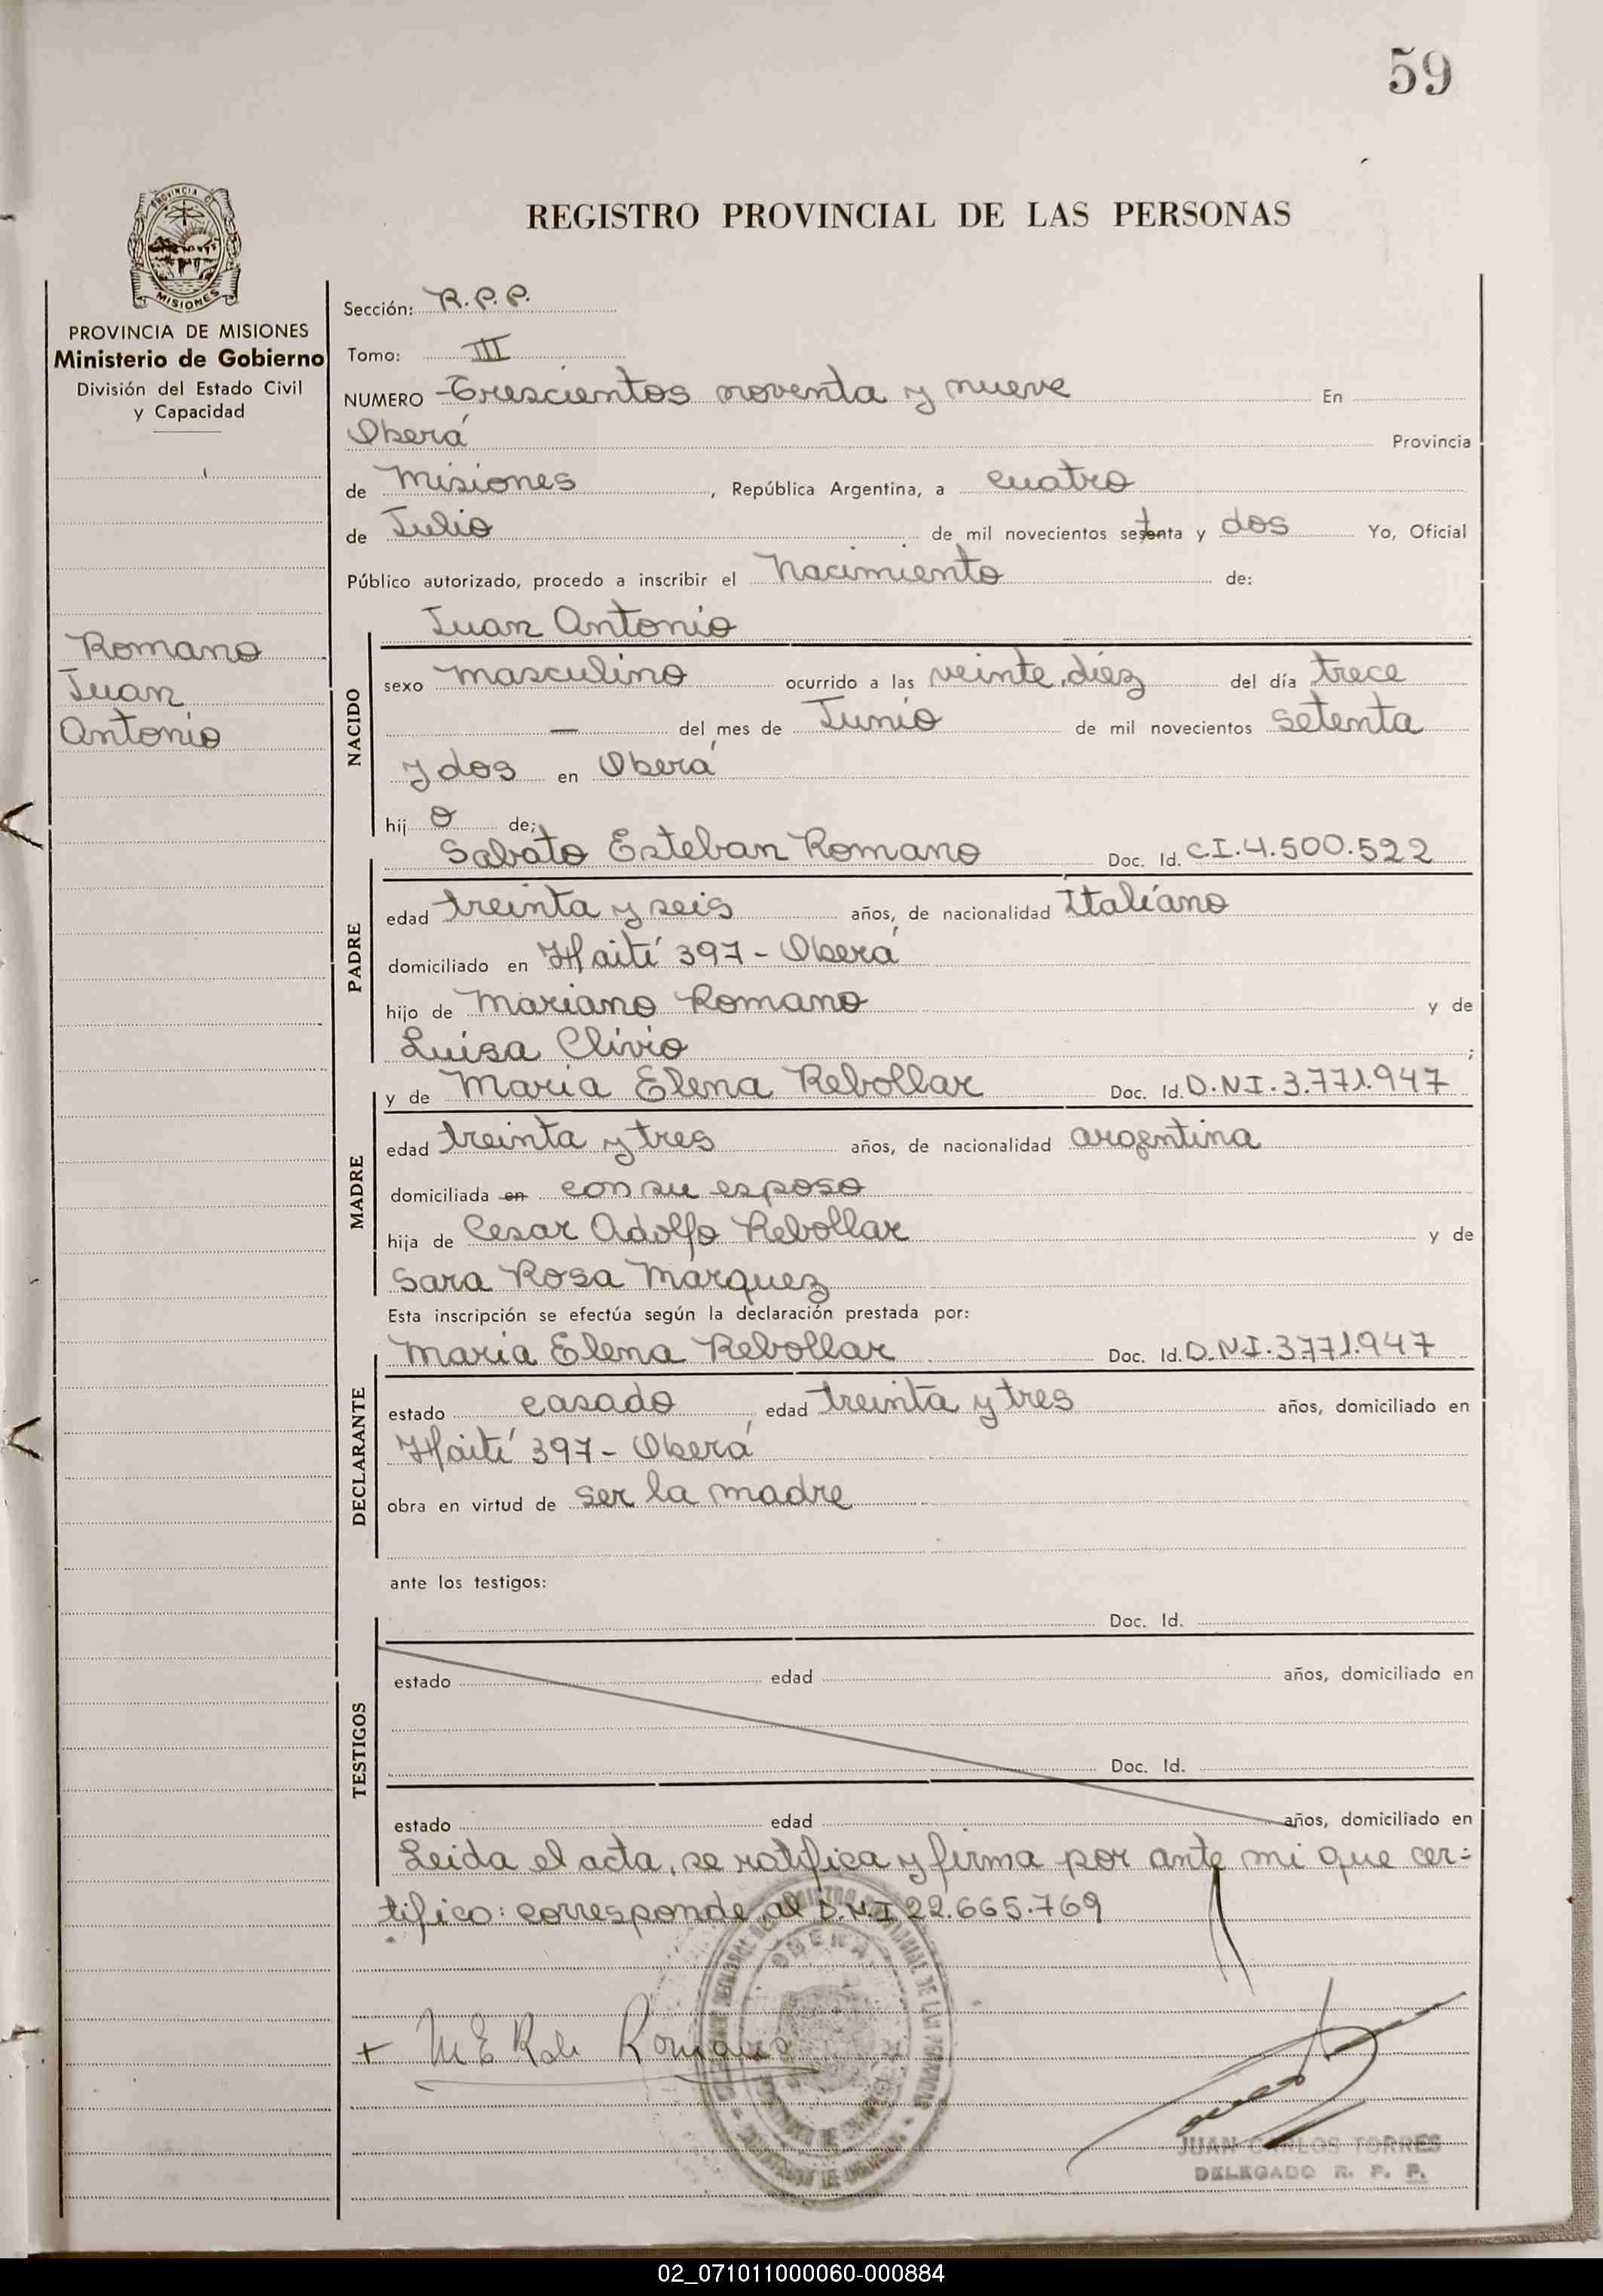 59
REGISTRO PROVINCIAL DE LAS PERSONAS
PROVINCIA DE MISIONES
Ministerio de Gobierno
División del Estado Civil
y Capacidad
Romano
Juan
Antonio
Sección: R.P.P.
Tomo: III
NUMERO -Trescientos noventa y nueve En
Oberá Provincia
de Misiones, República Argentina, a cuatro
de Julio de mil novecientos setenta y dos Yo, Oficial
Público autorizado, procedo a inscribir el Nacimiento de:
Juan Antonio
NACIDO
sexo masculino ocurrido a las veinte, diéz del día trece
— del mes de Junio de mil novecientos setenta
y dos en Oberá
hijo de;
Sabato Esteban Romano Doc. Id. C.I.4.500.522
PADRE
edad treinta y seis años, de nacionalidad Italiano
domiciliado en Haití 397 - Oberá
hijo de Mariano Romano y de
Luisa Clivio;
y de Maria Elena Rebollar Doc. Id. D.N.I.3.771.947
MADRE
edad treinta y tres años, de nacionalidad argentina
domiciliada en con su esposo
hija de Cesar Adolfo Rebollar y de
Sara Rosa Márquez
Esta inscripción se efectúa según la declaración prestada por:
Maria Elena Rebollar Doc. Id. D.N.I.3.771.947
DECLARANTE
estado casado, edad treinta y tres años, domiciliado en
Haití 397 - Oberá
obra en virtud de ser la madre
ante los testigos:
Doc. Id.
TESTIGOS
estado edad años, domiciliado en
Doc. Id.
estado edad años, domiciliado en
Leida el acta, se ratifica y firma por ante mi que cer-
tifico: corresponde al D.N.I 22.665.769
OBERA
JUAN CARLOS TORRES
DELEGADO R. P. P.
02_071011000060-000884